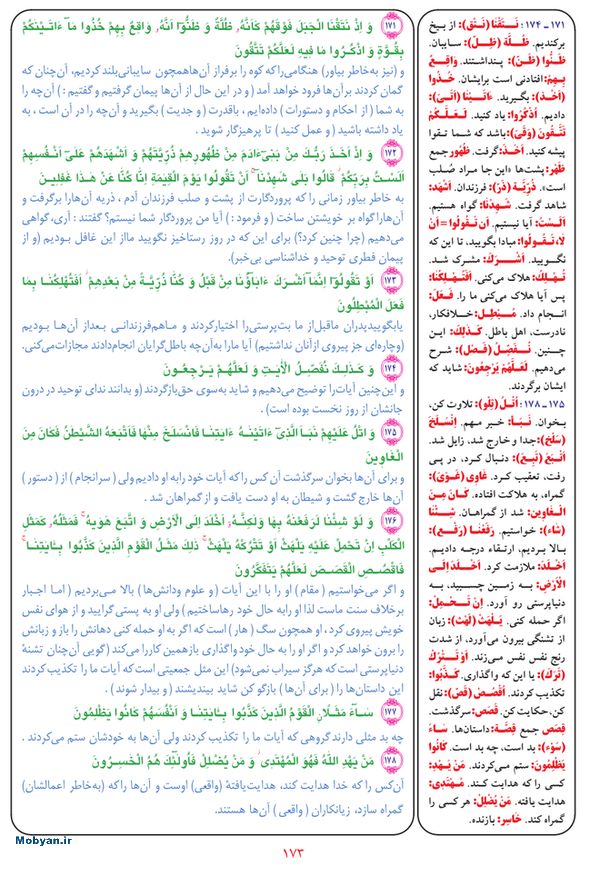 ۱۷۱ وَ اِذْ نَتَقْنَا الْجَبَلَ فَوْقَهُمْ كَاَنَّهُ ظُلَّةٌ وَ ظَنُّوٓا اَنَّهُ وَاقِعٌ بِهِمْ خُذُوا مَآ ءَاتَيْنٰكُمْ
بِقُوَّةٍ وَ اذْكُرُوا مَا فِيهِ لَعَلَّكُمْ تَتَّقُونَ
و (نیز به‌خاطر بیاور) هنگامی‌راکه کوه را برفراز آن‌هاهمچون سایبانی‌بلند کردیم، آن‌چنان که
گمان کردند برآن‌ها فرود خواهد آمد ( و در این حال از آن‌ها پیمان گرفتیم و گفتیم : ) آن‌چه را
به شما ( از احکام و دستورات ) داده‌ایم ، باقدرت ( و جدیت ) بگیرید و آن‌چه را در آن است ، به
یاد داشته باشید ( و عمل کنید ) تا پرهیزگار شوید .
۱۷۲ وَ اِذْ اَخَذَ رَبُّكَ مِنْ بَنىٓ ءَادَمَ مِنْ ظُهُورِهِمْ ذُرِّيَّتَهُمْ وَ اَشْهَدَهُمْ عَلٰىٓ اَنْفُسِهِمْ
اَلَسْتُ بِرَبِّكُمْ قَالُوا بَلٰى شَهِدْنَآ اَنْ تَقُولُوا يَوْمَ الْقِيٰمَةِ اِنَّا كُنَّا عَنْ هٰذَا غٰفِلِينَ
به خاطر بیاور زمانی را که پروردگارت از پشت و صلب فرزندان آدم ، ذریه آن‌هارا برگرفت و
آن‌هارا گواه بر خویشتن ساخت ( و فرمود : ) آیا من پروردگار شما نیستم؟ گفتند : آری، گواهی
می‌دهیم (چرا چنین کرد؟) برای این که در روز رستاخیز نگویید مااز این غافل بودیم (و از
پیمان فطری توحید و خداشناسی بی‌خبر).
۱۷۳ اَوْ تَقُولُوٓا اِنَّمَآ اَشْرَكَ ءَابَآؤُنَا مِنْ قَبْلُ وَ كُنَّا ذُرِّيَّةً مِنْ بَعْدِهِمْ اَفَتُهْلِكُنَا بِمَا
فَعَلَ الْمُبْطِلُونَ
یابگوییدپدران ماقبل‌از ما بت‌پرستی‌را اختیارکردند و ماهم‌فرزندانی بعداز آن‌ها بودیم
(وچاره‌ای جز پیروی ازآنان نداشتیم) آیا مارا به‌آن‌چه باطل‌گرایان انجام‌دادند مجازات‌می‌کنی.
۱۷۴ وَ كَذٰلِكَ نُفَصِّلُ الْاٰيٰتِ وَ لَعَلَّهُمْ يَرْجِعُونَ
و این‌چنین آیات‌را توضیح می‌دهیم و شاید به‌سوی حق‌بازگردند (و بدانند ندای توحید در درون
جانشان از روز نخست بوده است) .
۱۷۵ وَ اتْلُ عَلَيْهِمْ نَبَاَ الَّذِىٓ ءَاتَيْنٰهُ ءَايٰتِنَا فَانْسَلَخَ مِنْهَا فَاَتْبَعَهُ الشَّيْطٰنُ فَكَانَ مِنَ
الْغَاوِينَ
و برای آن‌ها بخوان سرگذشت آن کس را که آیات خود رابه او دادیم ولی ( سرانجام ) از ( دستور )
آن‌ها خارج گشت و شیطان به او دست یافت و از گمراهان شد .
۱۷۶ وَ لَوْ شِئْنَا لَرَفَعْنٰهُ بِهَا وَلٰكِنَّهُٓ اَخْلَدَ اِلَى الْاَرْضِ وَ اتَّبَعَ هَوٰيهُ فَمَثَلُهُ كَمَثَلِ
الْكَلْبِ اِنْ تَحْمِلْ عَلَيْهِ يَلْهَثْ اَوْ تَتْرُكْهُ يَلْهَثْ ذٰلِكَ مَثَلُ الْقَوْمِ الَّذِينَ كَذَّبُوا بِـَٔايٰتِنَا
فَاقْصُصِ الْقَصَصَ لَعَلَّهُمْ يَتَفَكَّرُونَ
و اگر می‌خواستیم (مقام) او را با این آیات ( و علوم ودانش‌ها ) بالا می‌بردیم ( اما اجبار
برخلاف سنت ماست لذا او رابه حال خود رهاساختیم ) ولی او به پستی گرایید و از هوای نفس
خویش پیروی کرد ، او همچون سگ ( هار ) است که اگر به او حمله کنی دهانش را باز و زبانش
را برون خواهد کرد و اگر او را به حال خودواگذاری بازهمین کاررا می‌کند (گویی آن‌چنان تشنهٔ
دنیاپرستی است که هرگز سیراب نمی‌شود) این مثل جمعیتی است که آیات ما را تکذیب کردند
این داستان‌ها را ( برای آن‌ها ) بازگو کن شاید بیندیشند ( و بیدار شوند ) .
۱۷۷ سَآءَ مَثَلًا الْقَوْمُ الَّذِينَ كَذَّبُوا بِـَٔايٰتِنَا وَ اَنْفُسَهُمْ كَانُوا يَظْلِمُونَ
چه بد مثلی دارند گروهی که آیات ما را تکذیب کردند ولی آن‌ها به خودشان ستم می‌کردند .
۱۷۸ مَنْ يَهْدِ اللّٰهُ فَهُوَ الْمُهْتَدِى وَ مَنْ يُضْلِلْ فَاُولٰٓئِكَ هُمُ الْخٰسِرُونَ
آن‌کس را که خدا هدایت کند، هدایت‌یافتهٔ (واقعی) اوست و آن‌ها را که (به‌خاطر اعمالشان)
گمراه سازد، زیانکاران ( واقعی ) آن‌ها هستند.
۱۷۱ ـ ۱۷۴: نَتَقْنَا (نَتْق): از بیخ
برکندیم. ظُلَّة (ظِلّ): سایبان.
ظَنُّوا (ظَنّ): پنداشتند. واقِعٌ
بِهِمْ: افتادنی است برایشان. خُذُوا
(اَخْذ): بگیرید. ءَاتَيْنا (اَتْى):
دادیم. اُذْكُرُوا: یاد کنید. لَعَلَّكُمْ
تَتَّقُونَ (وَقْى): باشد که شما تقوا
پیشه کنید. اَخَذَ: گرفت. ظُهُور جمع
ظَهْر: پشت‌ها «این جا مراد صُلب
است». ذُرِّيَّة (ذَرّ): فرزندان. اَشْهَدَ:
شاهد گرفت. شَهِدْنا: گواه هستیم.
اَلَسْتُ: آیا نیستیم. اَن تَقُولُوا = اَنْ
لا تَقُولُوا: مبادا بگویید، تا این که
نگویید. اَشْرَكَ: مشرک شد.
تُهْلِكُ: هلاک می‌کنی. اَفَتُهْلِكُنا:
پس آیا هلاک می‌کنی ما را. فَعَلَ:
انجام داد. مُبْطِل: خلافکار،
نادرست، اهل باطل. كَذلِكَ: این
چنین. نُفَصِّلُ (فَصْل): شرح
می‌دهیم. لَعَلَّهُمْ يَرْجِعُونَ: شاید که
ایشان برگردند.
۱۷۵ ـ ۱۷۸: اُتْلُ (تِلْو): تلاوت کن،
بخوان. نَبَأ: خبر مهم. اِنْسَلَخَ
(سَلْخ): جدا و خارج شد، زایل شد.
اَتْبَعَ (تَبَع): دنبال کرد، در پی
رفت، تعقیب کرد. غاوِى (غَوْى):
گمراه، به هلاکت افتاده. كانَ مِنَ
الْغاوِينَ: شد از گمراهان. شِئْنا
(شاء): خواستیم. رَفَعْنا (رَفْع):
بالا بردیم، ارتقاء درجه دادیم.
اَخْلَدَ: ملازمت کرد. اَخْلَدَ اِلَى
الْاَرْضِ: به زمین چسبید، به
دنیاپرستی رو آورد. اِنْ تَحْمِلْ:
اگر حمله کنی. يَلْهَثْ (لَهْث): زبان
از تشنگی بیرون می‌آورد، از شدت
رنج نفس نفس می‌زند. اَوْ تَتْرُكْ
(تَرْك): یا این که واگذاری. كَذَّبُوا:
تکذیب کردند. اُقْصُصْ (قَصّ): نقل
کن، حکایت کن. قَصَص: سرگذشت.
قِصَص جمع قِصَّة: داستان‌ها. سَاءَ
(سَوْء): بد است، چه بد است. كانُوا
يَظْلِمُونَ: ستم می‌کردند. مَنْ يَهْدِ:
کسی را که هدایت کند. مُهْتَدِى:
هدایت یافته. مَنْ يُضْلِلْ: هر کسی را
گمراه کند. خاسِر: بازنده.
Mobyan.ir
۱۷۳